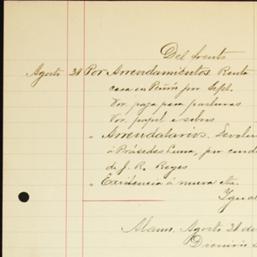 Del frente
Agosto 28 Por Arrendamientos. Renta
casa en Peñón por Sept.
Por paja para pasturas
Por papel y sobres
" Arrendatarios. Devolu
á Práxedes Luna, por cond
de J. R. Reyes
" Existencia á nueva cta.
Igual
Alamo, Agosto 28 de
Dionisio